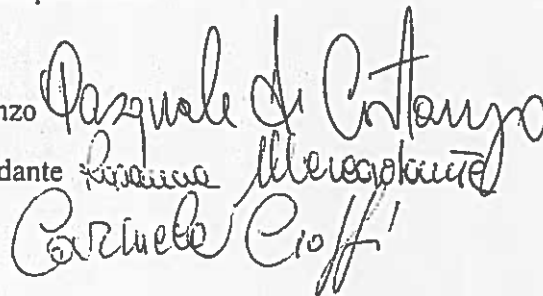 nzo Pasquale di Costanzo
dante Rosanna Mercadante
Carmela Cioffi